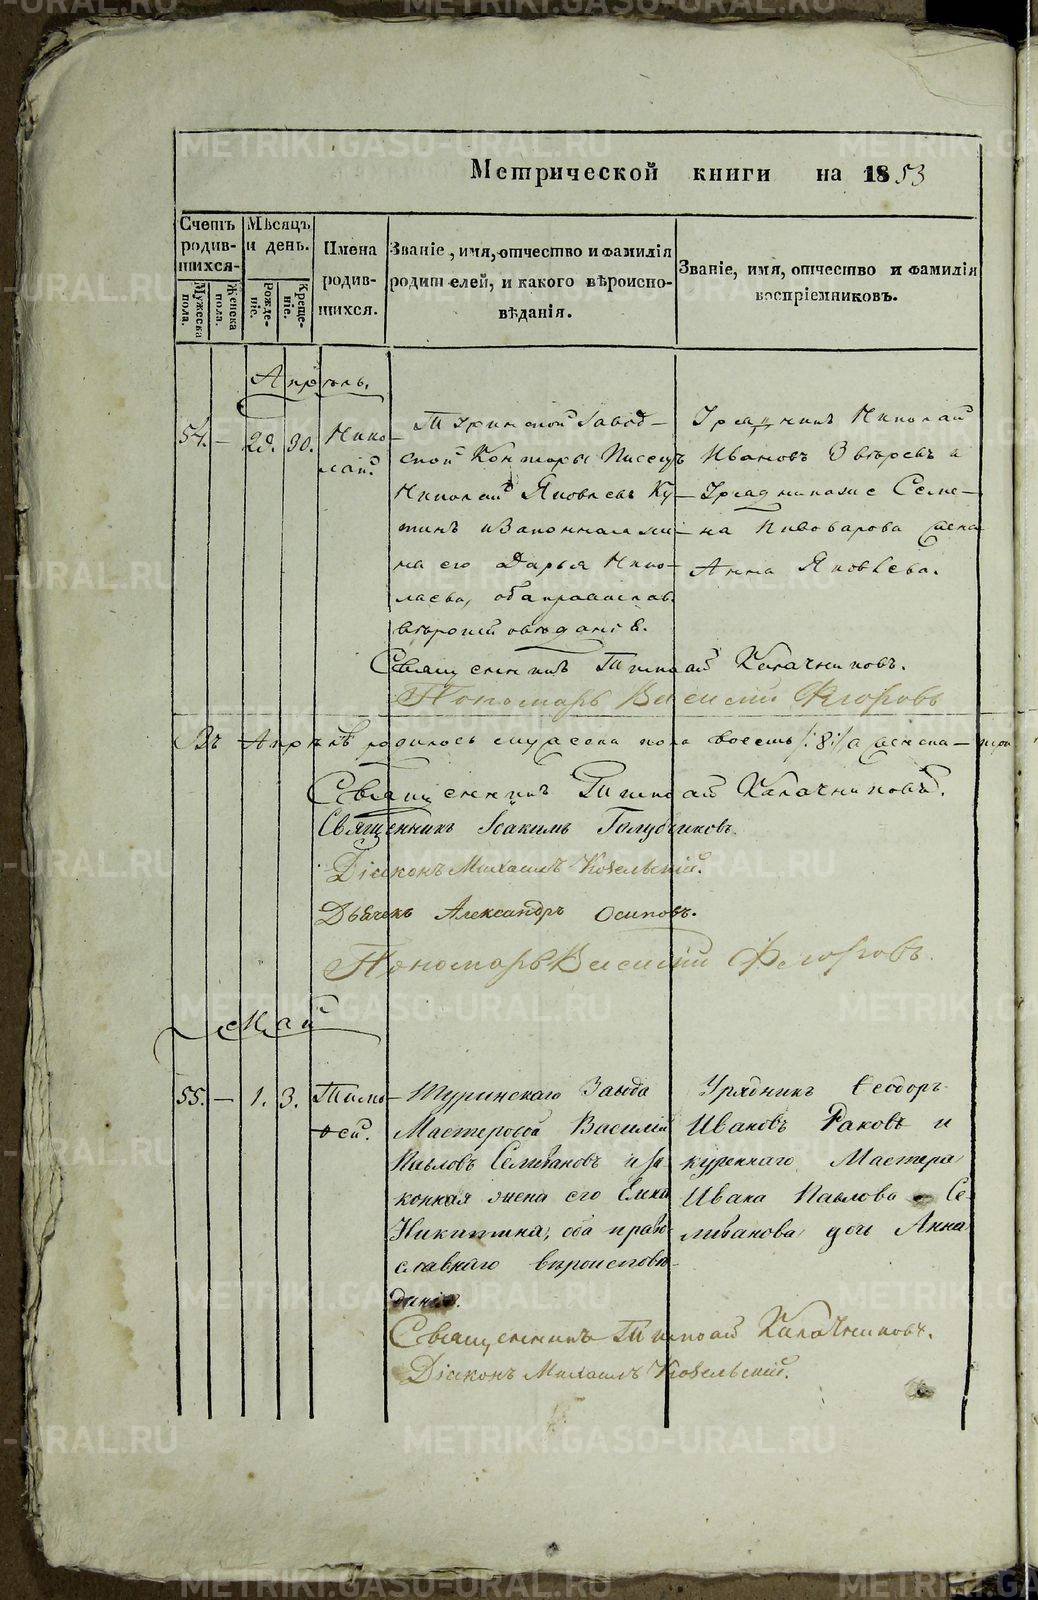 Метрической книги на 1853
Счетъ родив-шихся.
Мѣсяцъ и день.
Имена родив-шихся.
Званіе, имя, отчество и фамилія родителей, и какого вѣроисповѣданія.
Званіе, имя, отчество и фамилія воспріемниковъ.
Мужеска пола.
Женска пола.
Рожденіе.
Крещеніе.
Апрѣль.
54. — 30. Нико-
лай.
Туринской Завод-
ской Конторы Писецъ
Николай Яковлевъ Ку-
тинъ и Законная же-
на его Дарья Нико-
лаева, оба православ.
вѣроисповѣданія.
Урядникъ Николай
Ивановъ Звѣревъ и
Семе-
на Пивоварова жена
Анна Яковлева.
Священникъ Тимофей Калачниковъ.
Пономарь Василій Флоровъ
Въ Апрѣлѣ родилось мужеска пола восемь /:8:/ а женска — три
Священникъ Тимофей Калачниковъ.
Священникъ Іоакимъ Голубчиковъ.
Діаконъ Михаилъ Кобельскій.
Дьячекъ Александръ Осиповъ.
Пономарь Василій Флоровъ.
Май
55. — 1. 3. Тимо-
ѳей.
Туринскаго Завода
Мастеровой Василій
Павловъ Селивановъ и за-
конная жена его Елена
Никитина, оба право-
славнаго вѣроисповѣ-
данія.
Урядникъ Ѳеодоръ
Ивановъ Раковъ и
куреннаго Мастера
Ивана Павлова Се-
ливанова дочь Анна
Священникъ Тимофей Калачниковъ.
Діаконъ Михаилъ Кобельскій.
METRIKI.GASO-URAL.RU